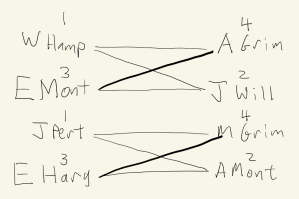 1 4
W Hamp A Grim
3 2
E Mont J Will
1 4
J Pert M Grim
3 2
E Harg A Mont